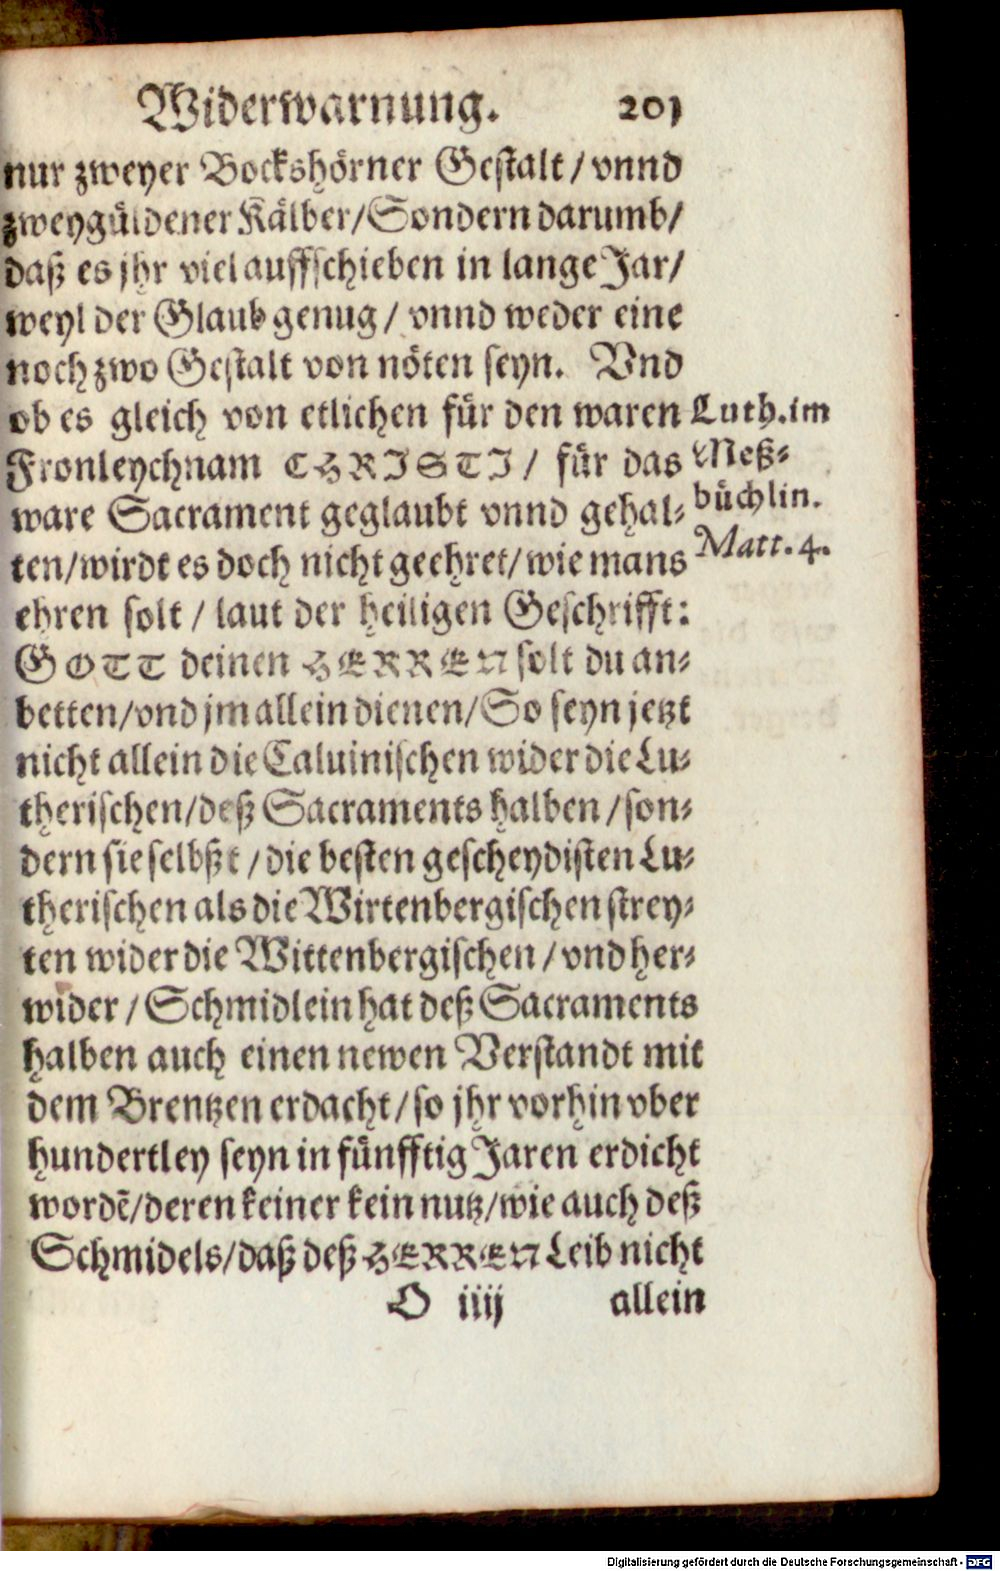 Widerwarnung. 201
nur zweyer Bockshörner Gestalt / vnnd
zweygüldener Kälber/Sondern darumb/
daß es jhr viel auffschieben in lange Jar/
weyl der Glaub genug / vnnd weder eine
noch zwo Gestalt von nöten seyn. Vnd
ob es gleich von etlichen für den waren
Fronleychnam CHRISTI / für das
ware Sacrament geglaubt vnnd gehal-
ten/wirdt es doch nicht geehret/wie mans
ehren solt / laut der heiligen Geschrifft:
GOTT deinen HERREN solt du an-
betten/vnd jm allein dienen/So seyn jetzt
nicht allein die Caluinischen wider die Lu-
therischen/deß Sacraments halben / son-
dern sie selbßt / die besten gescheydisten Lu-
therischen als die Wirtenbergischen strey-
ten wider die Wittenbergischen / vnd her-
wider / Schmidlein hat deß Sacraments
halben auch einen newen Verstandt mit
dem Brentzen erdacht / so jhr vorhin vber
hundertley seyn in fünfftig Jaren erdicht
wordẽ/deren keiner kein nutz/wie auch deß
Schmidels/daß deß HERREN Leib nicht
O iiij allein
Luth. im
Meß-
büchlin.
Matt. 4.
Digitalisierung gefördert durch die Deutsche Forschungsgemeinschaft - DFG